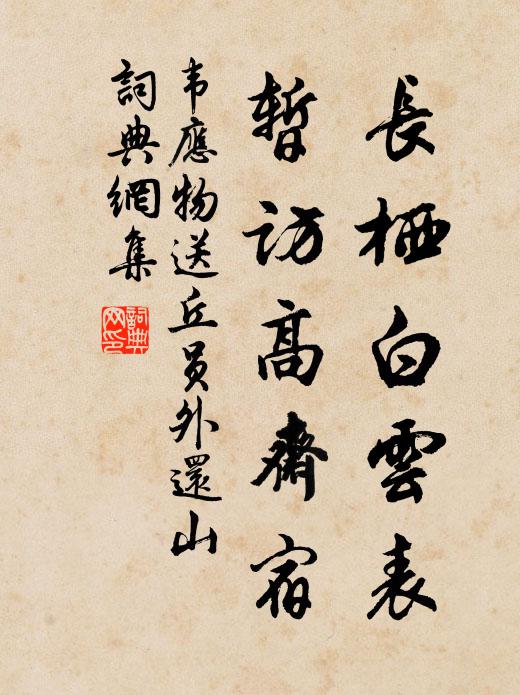 長栖白雲表
暫訪高齋宿
韦應物送丘员外還山
詞典網集
詞典網印